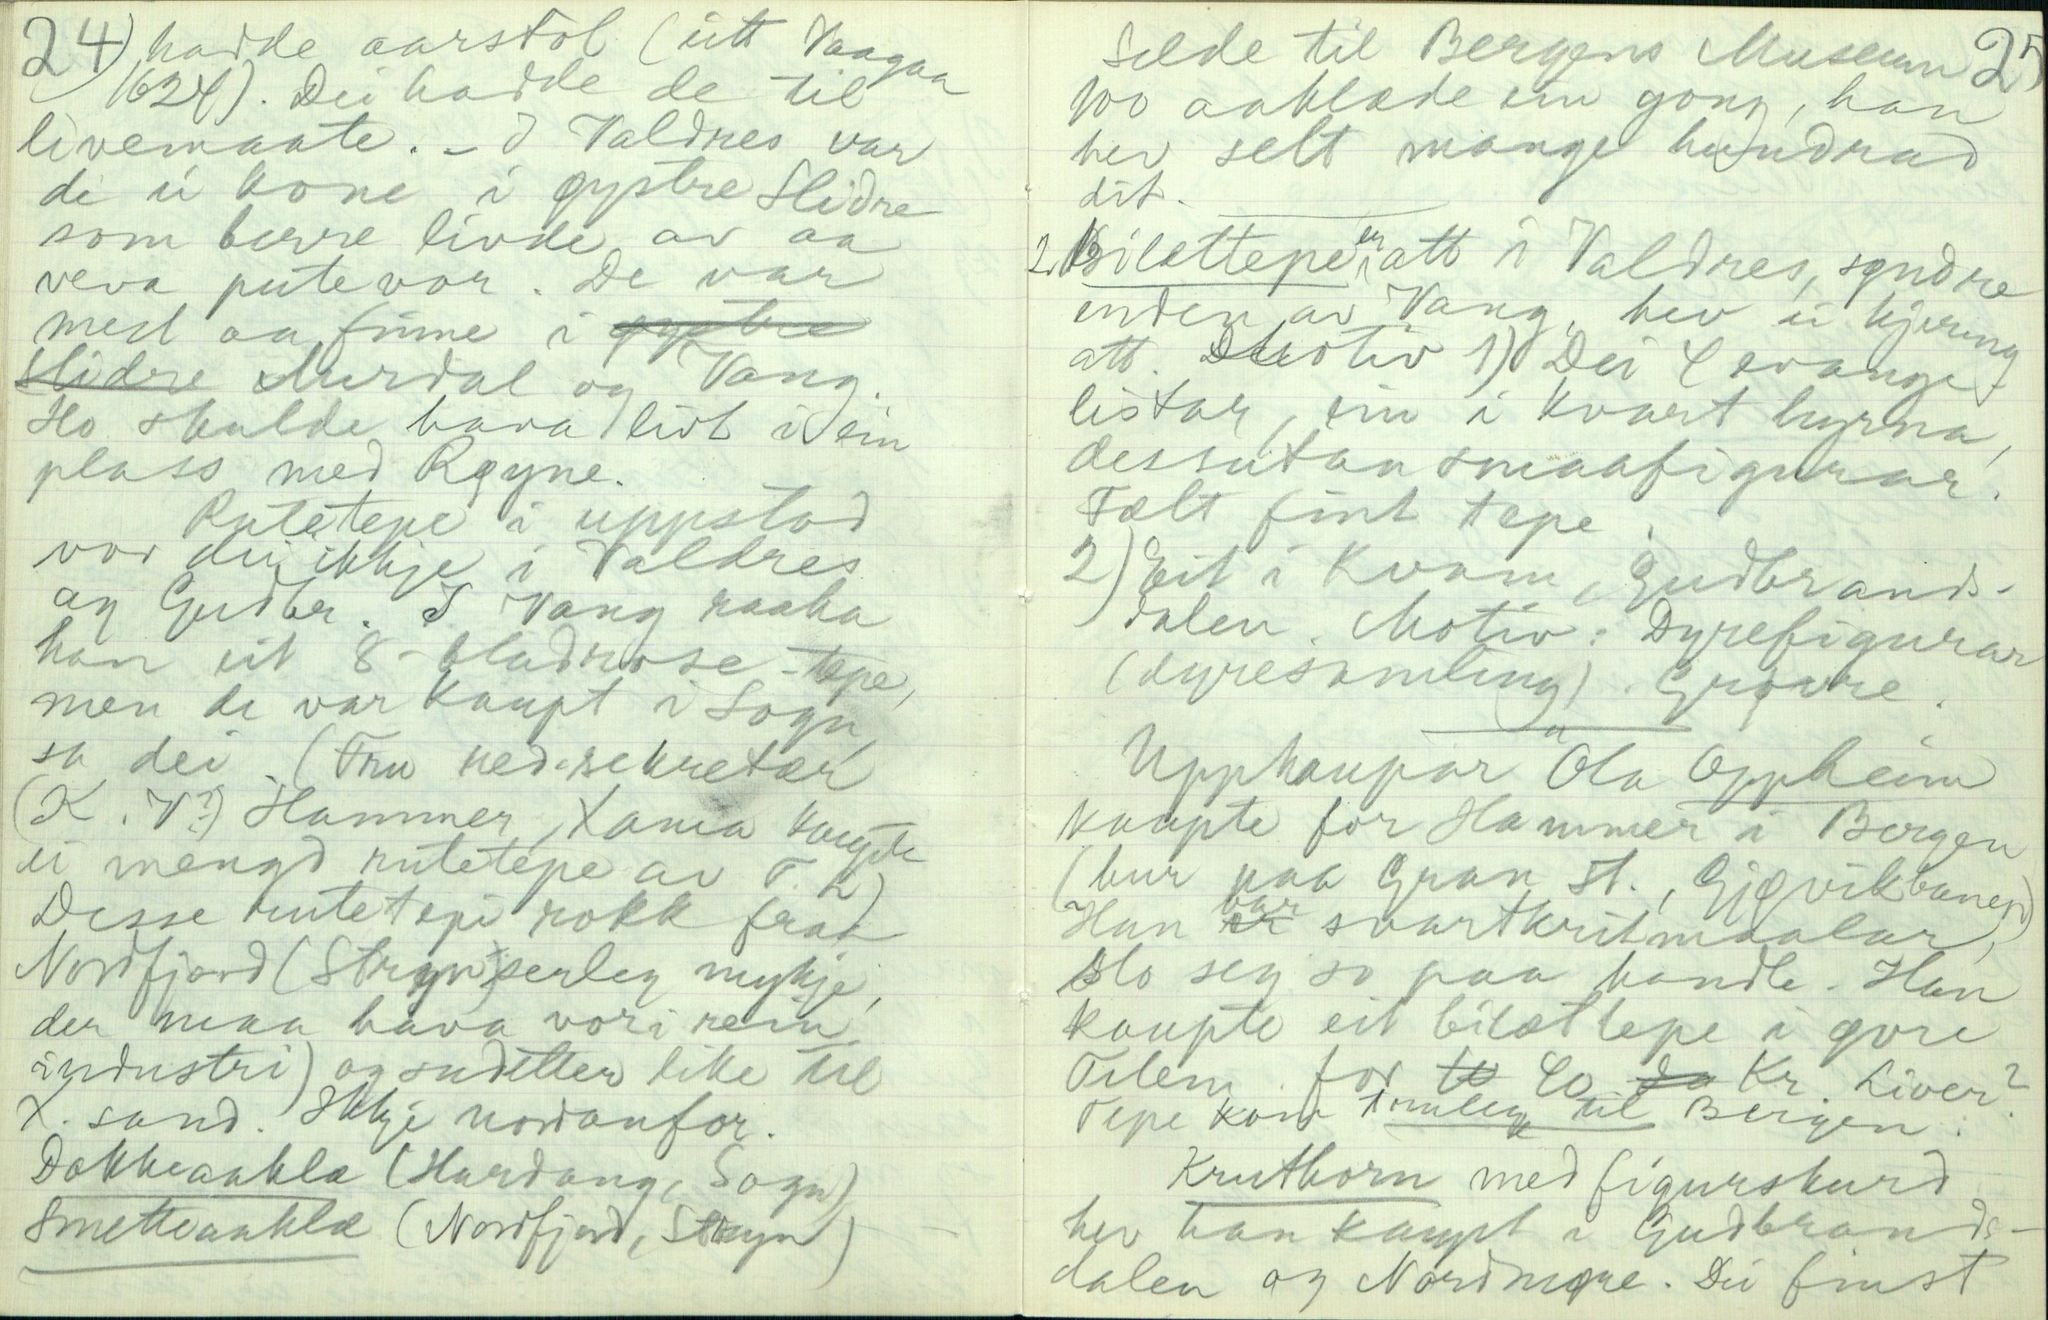 24) hadde aarstol (eitt Vaagaa
1624). Dei hadde de til
livemaate. - I Valdres var
de ei kone i øystre Slidre
som berre livde av aa
veva putevor. De var
mest aa finne i øystre
Slidre Aurdal og Vang.
Ho skulde hava livt i ein
plass med Røyne.
Rutetepe i uppstod
var dei ikkje i Valdres
og Gudbr. I Vang raaka
han eit 8-bladrose-tepe,
men de var kaupt i Sogn
sa dei. (Fru red.sekretær
(K. V?) Hammer, Xania kaupte
ei mengd rutetepe av T. L)
Desse rutetepi rokk fraa
Nordfjord (Stryn) serleg mykje,
der maa hava vori rein
industri) og sudetter like til
X.sand. Ikkje nordanfor.
Dokkeaakla (Hardang, Sogn)
Smetteaaklæ (Nordfjord, Stryn) -
25
Selde til Bergens Museum
100 aaklæde ein gong, han
hev selt mange hundrad
dit.
2. Bilættepe er att i Valdres, syndre
enden av Vang, hev ei kjering
att. Motiv 1) Dei 4 evange-
listar, ein i kvart hyrna,
dessutan smaafigurar.
Fælt fint tepe.
2) Eit i Kvam, Gudbrands-
dalen. Motiv: Dyrefigurar
(dyresamling). Grovare.
Uppkaupar Ola Oppheim
kaupte for Hammer i Bergen
(bur paa Gran St., Gjøvikbanen)
Han er var svartkritmaalar,
slo seg so paa handle. Han
kaupte eit bilættepe i øvre
Telem. for to 40 da Kr. Liver?
Tepe kom truleg til Bergen.
Kruthorn med figurskurd
hev han kaupt i Gudbrands-
dalen og Nordmøre. Dei finst